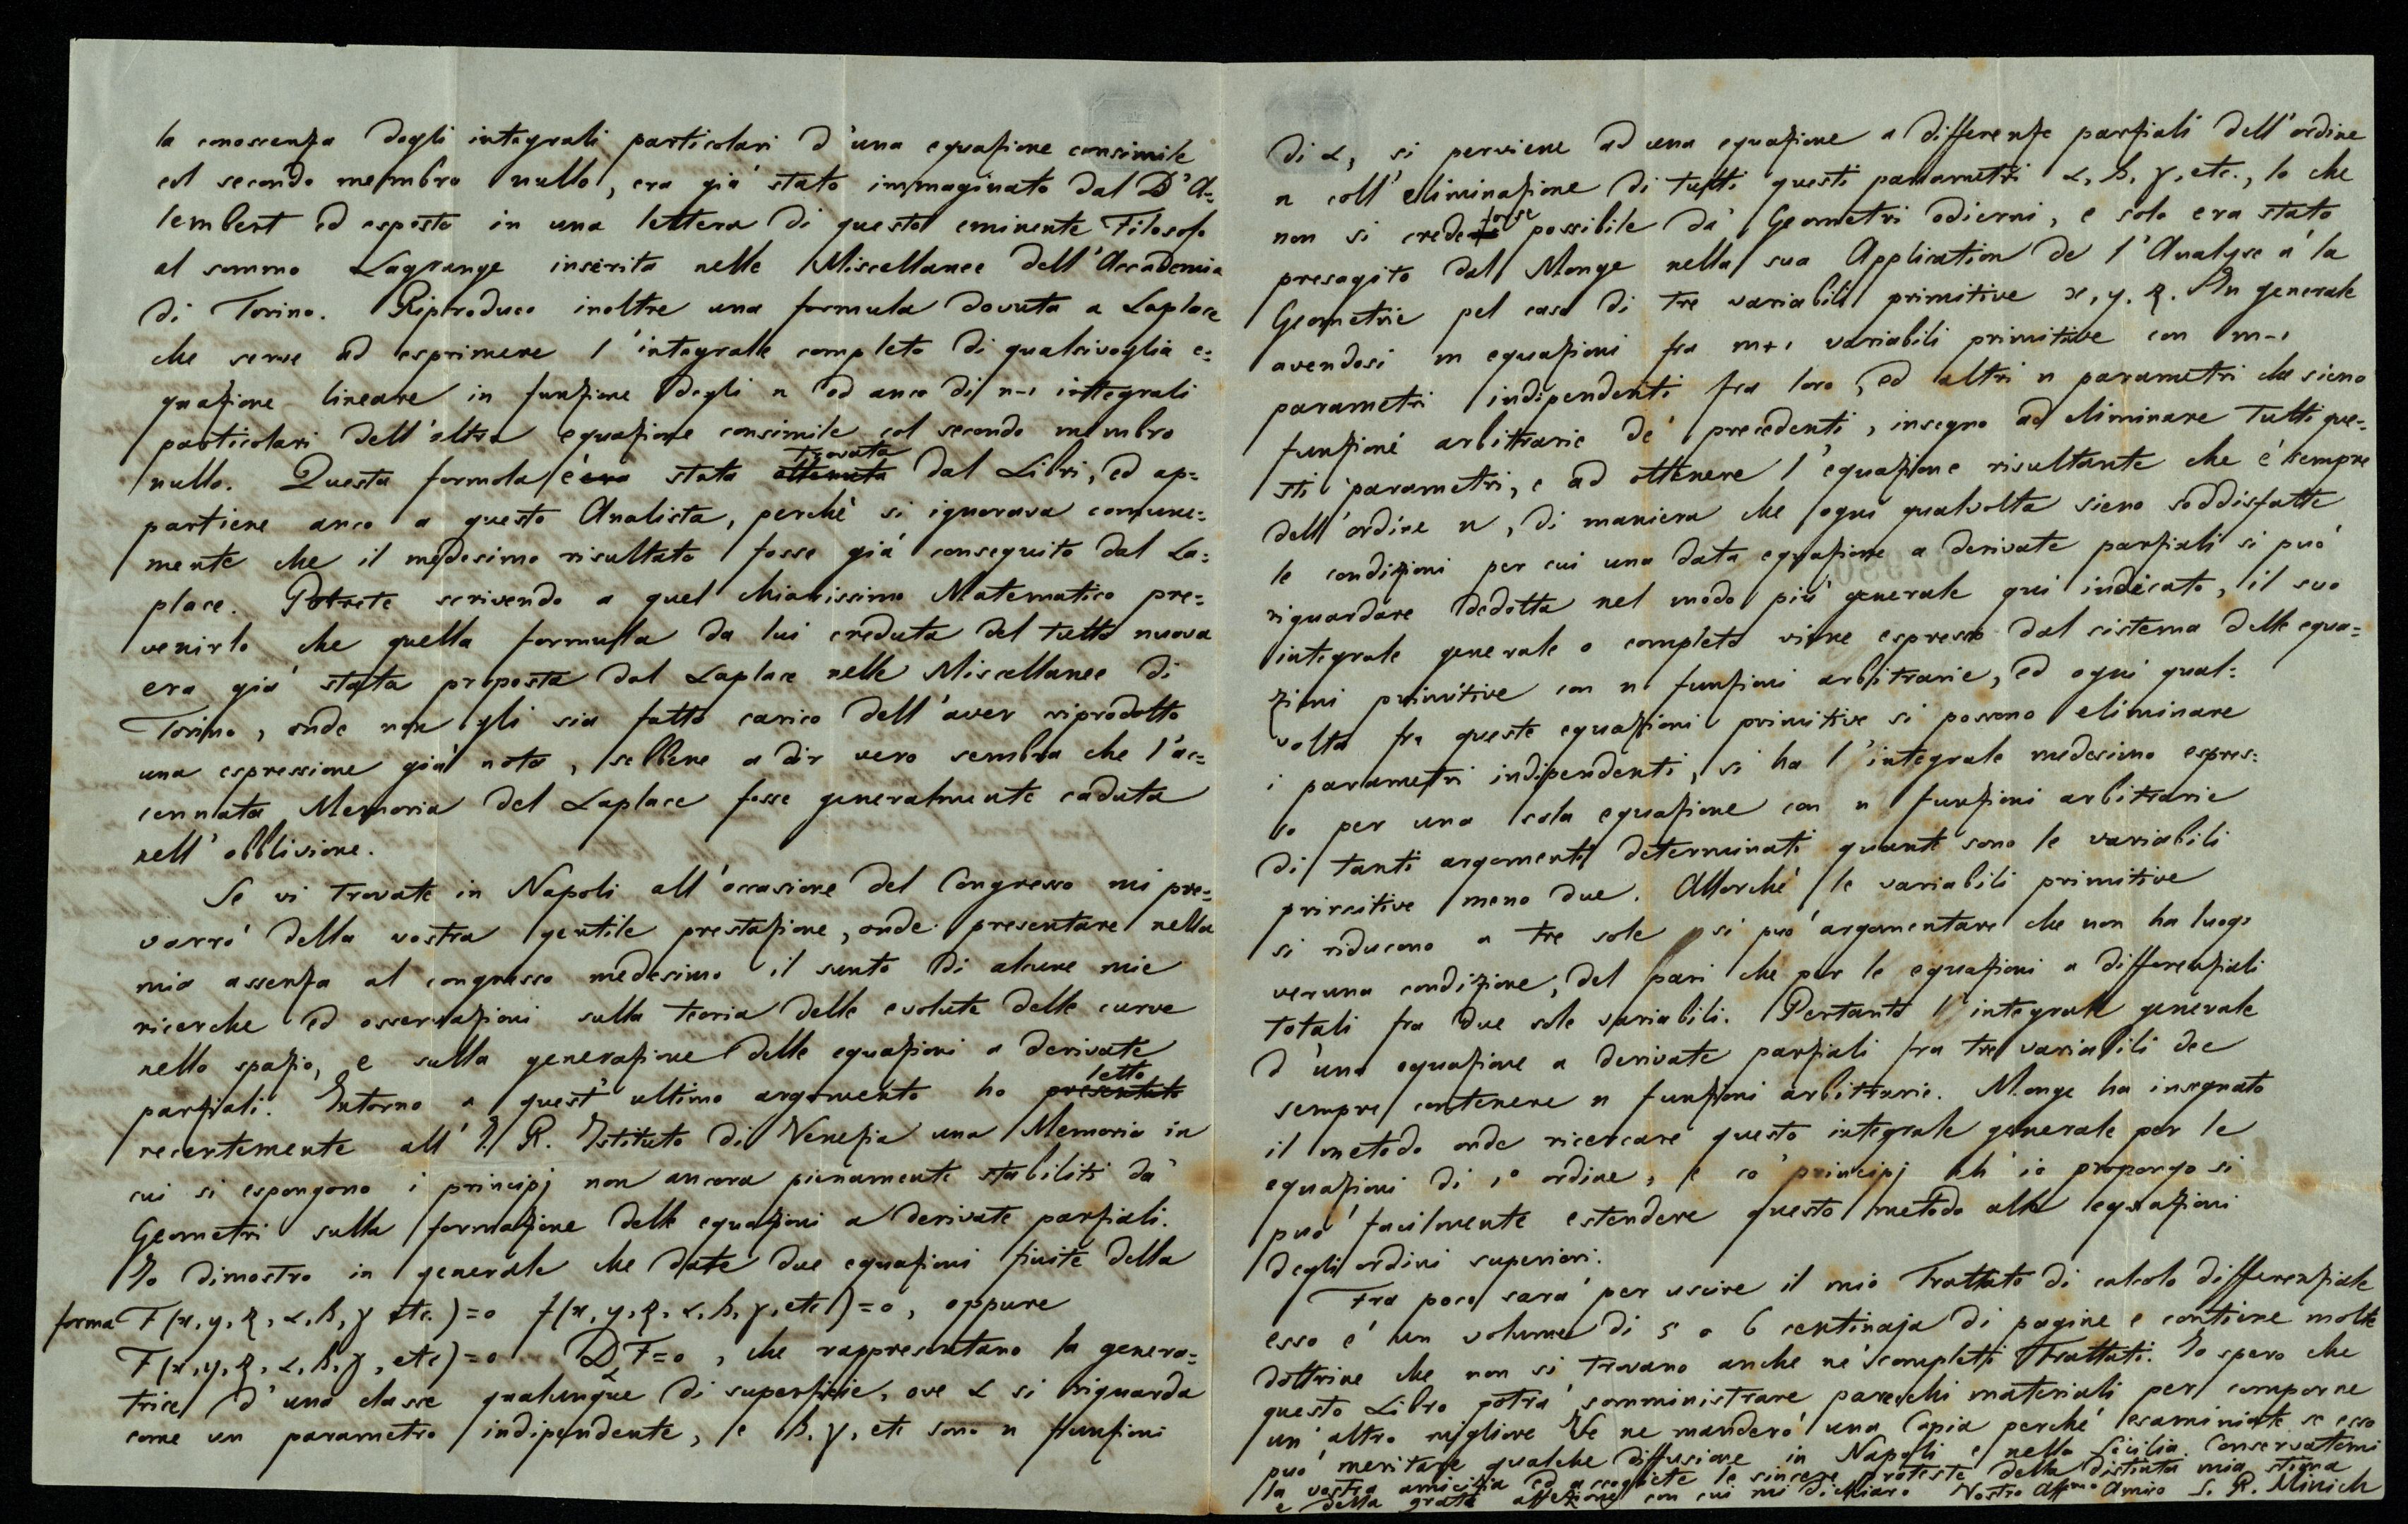 la conoscenza degli integrali particolari d'una equazione consimile
col secondo membro nullo, era già stato immaginato dal D'A=
lembert ed esposto in una lettera di questo eminente Filosofo
al sommo Lagrange inserita nelle Miscellanee dell'Accademia
di Torino. Riproduco inoltre una formula dovuta a Laplace
che serve ad esprimere l'integrale completo di qualsivoglia e=
quazione lineare in funzione degli n od anco di n-1 integrali
particolari dell'altra equazione consimile col secondo membro
nullo. Questa formola è era stata trovata ottenuta dal Libri, ed ap=
partiene anco a questo Analista, perchè si ignorava comune=
mente che il medesimo risultato fosse già conseguito dal La=
place. Potrete scrivendo a quel chiarissimo Matematico pre=
venirlo che quella formula da lui creduta del tutto nuova
era già stata proposta dal Laplace nelle Miscellanee di
Torino, onde non gli sia fatto carico dell'aver riprodotto
una espressione già nota, sebbene a dir vero sembra che l'ac=
cennata Memoria del Laplace fosse generalmente caduta
nell'obblivione.
Se vi trovate in Napoli all'occasione del Congresso mi pre=
varrò della vostra gentile prestazione, onde presentare nella
mia assenza al congresso medesimo il sunto di alcune mie
ricerche ed osservazioni sulla teoria delle evolute delle curve
nello spazio, e sulla generazione delle equazioni a derivate
parziali. Intorno a quest'ultimo argomento ho letto presentato
recentemente all'I. R. Istituto di Venezia una Memoria in
cui si espongono i principj non ancora pienamente stabiliti da'
Geometri sulla formazione delle equazioni a derivate parziali.
Io dimostro in generale che date due equazioni finite della
forma F(x, y, z, α, β, γ etc.)=0 f(x, y, z, α, β, γ, etc)=0, oppure
F(x, y, z, α, β, γ, etc)=0 D_α F=0, che rappresentano la genera=
trice d'una classe qualunque di superficie, ove α si riguarda
come un parametro indipendente, e β, γ, etc sono n funzioni
di α, si perviene ad una equazione a differenze parziali dell'ordine
n coll'eliminazione di tutti questi parametri α, β, γ, etc., lo che
non si crede forse possibile da' Geometri odierni, e solo era stato
presagito dal Monge nella sua Application de l'Analyse à la
Geometrie pel caso di tre variabili primitive x, y, z. In generale
avendosi m equazioni fra m+1 variabili primitive con m-1
parametri indipendenti fra loro, ed altri n parametri che sieno
funzioni arbitrarie de' precedenti, insegno ad eliminare tutti que=
sti parametri, e ad ottenere l'equazione risultante che è sempre
dell'ordine n, di maniera che ogni qualvolta sieno soddisfatte
le condizioni per cui una data equazione a derivate parziali si può
riguardare dedotta nel modo più generale qui indicato, il suo
integrale generale o completo viene espresso dal sistema delle equa=
zioni primitive con n funzioni arbitrarie, ed ogni qual=
volta fra queste equazioni primitive si possono eliminare
i parametri indipendenti, si ha l'integrale medesimo espres=
so per una sola equazione con n funzioni arbitrarie
di tanti argomenti determinati quante sono le variabili
primitive meno due. Allorchè le variabili primitive
si riducono a tre sole, si può argomentare che non ha luogo
veruna condizione, del pari che per le equazioni a differenziali
totali fra due sole variabili. Pertanto l'integrale generale
d'una equazione a derivate parziali fra tre variabili dee
sempre contenere n funzioni arbitrarie. Monge ha insegnato
il metodo onde ricercare questo integrale generale per le
equazioni di 1º ordine, e co' principj ch'io propongo si
può facilmente estendere questo metodo alle equazioni
degli ordini superiori.
Fra poco sarà per uscire il mio Trattato di calcolo differenziale
esso è un volume di 5 o 6 centinaja di pagine e contiene molte
dottrine che non si trovano anche ne' completi Trattati. Io spero che
questo Libro potrà somministrare parecchi materiali per comporne
un altro migliore Ve ne manderò una Copia perchè esaminiate se esso
può meritare qualche diffusione in Napoli e nella Sicilia. Conservatemi
la vostra amicizia ed accogliete le sincere proteste della distinta mia stima
e della grata affezione con cui mi dichiaro Vostro Affmo Amico S. R. Minich